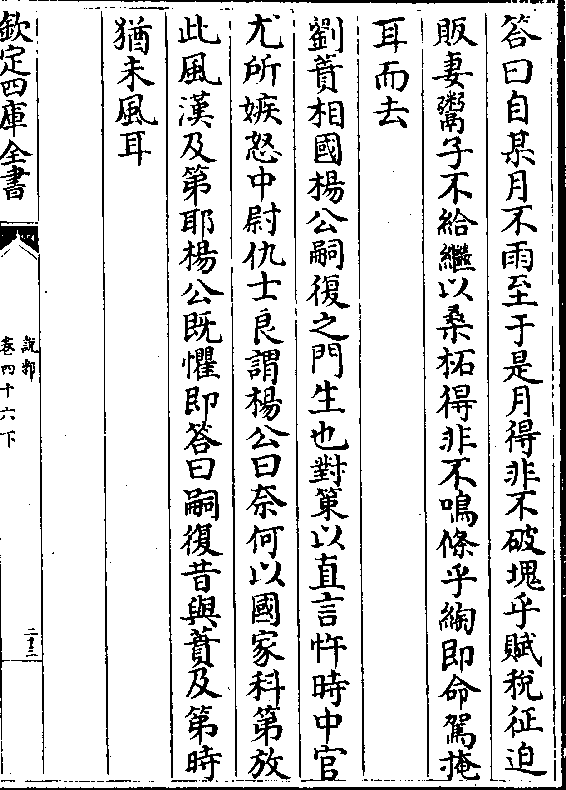 答曰自某月不雨至于是月得非不破塊乎賦稅征迫
販妻鬻子不給繼以桑柘得非不鳴條乎綯即命駕掩
耳而去
劉蕡相國楊公嗣復之門生也對策以直言忤時中官
尤所嫉怒中尉仇士良謂楊公曰奈何以國家科第放
此風漢及第耶楊公既懼即答曰嗣復昔與蕡及第時
猶未風耳
欽定四庫全書
說郛
卷四十六下
二十三